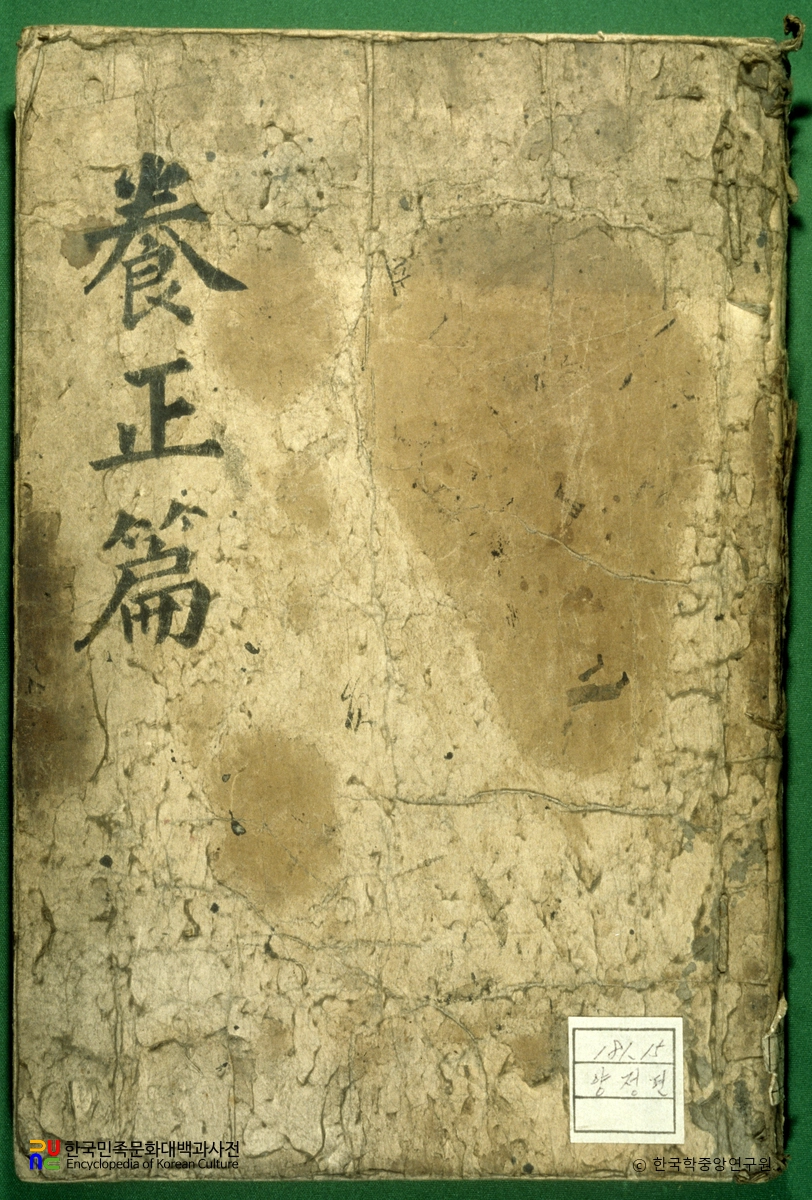 養正篇
181.15
양정편
한국민족문화대백과사전
Encyclopedia of Korean Culture
© 한국학중앙연구원